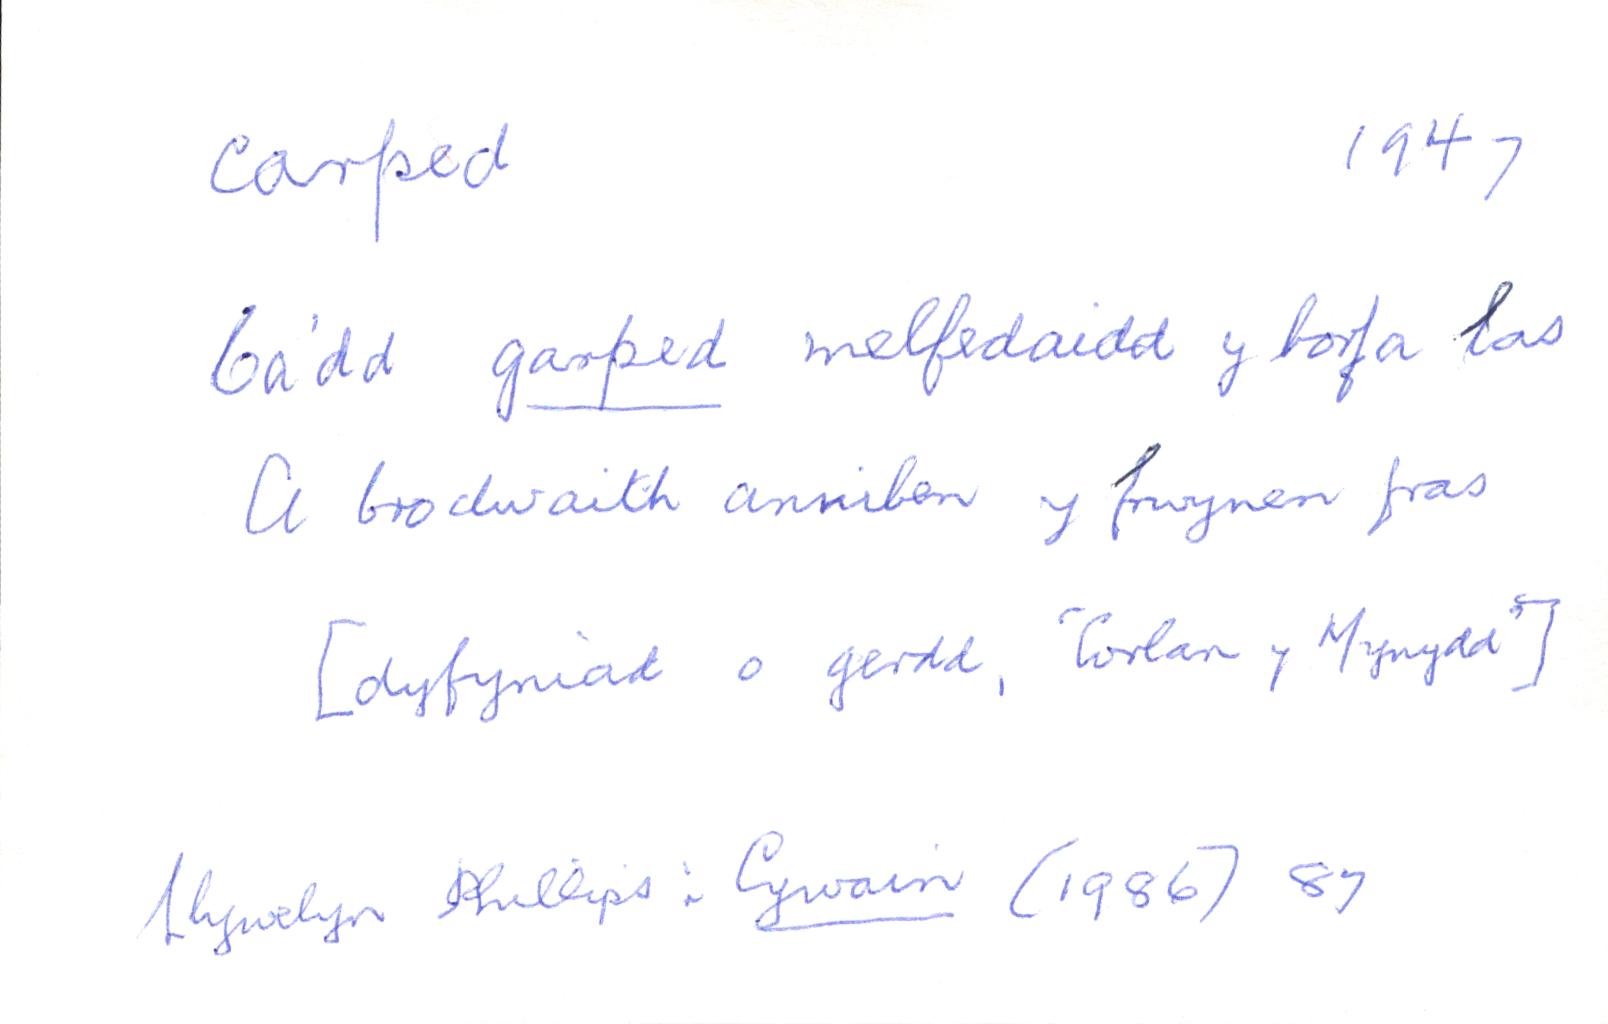 carped 1947
Ca'dd garped melfedaidd y borfa las
A brodwaith anniben y frwynen fras
[dyfyniad o gerdd, "Corlan y Mynydd"]
Llywelyn Phillips : Cywain (1986) 87